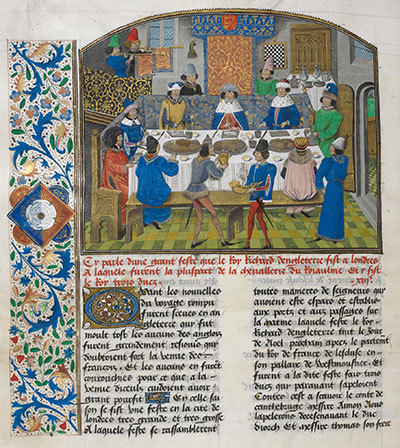 Cy parle dune grant feste que le Roy Richard dengleterre fist a londres
A laquelle furent la pluspart de la chevallerie du Roiaulme Et fist
le Roy trois ducz
Quant les nouvelles
du voyage rompu
furent sceues en an
gleterre qui fut
moult tost les aucuns des anglois
furent grandement qui
doubtoient fort la venue des
francois. Et les aucuns en furent
courrouchiez pour ce que a la
venue diceulz cuidoient avoir
grant pourfit En celle sai
son se fist une feste en la cite de
londres tres grande et tres grosse
A laquelle feste se rassemblerent
toutes manieres de seigneurs qui
avoient este espars et establis
aux portz et aux passages sur
la marine laquelle feste le Roy
Richard dengleterre tint le Jour
de Noel prochain apres le partement
du Roy de france de lescluse en
son pallaix de Westmonstier. Et
furent a la dite feste fais trois
ducz qui paravant sapeloient
Contes cest a scavoir le conte de
canthebruge messire Aimon
doresenavant le duc
diorch Et messire thomas son frere